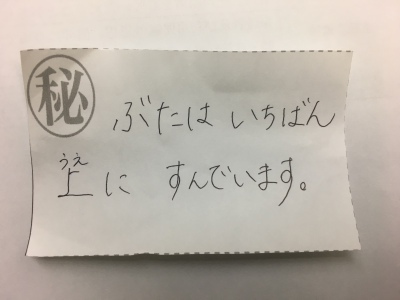 ㊙ ぶたは いちばん
上に すんでいます。
うえ